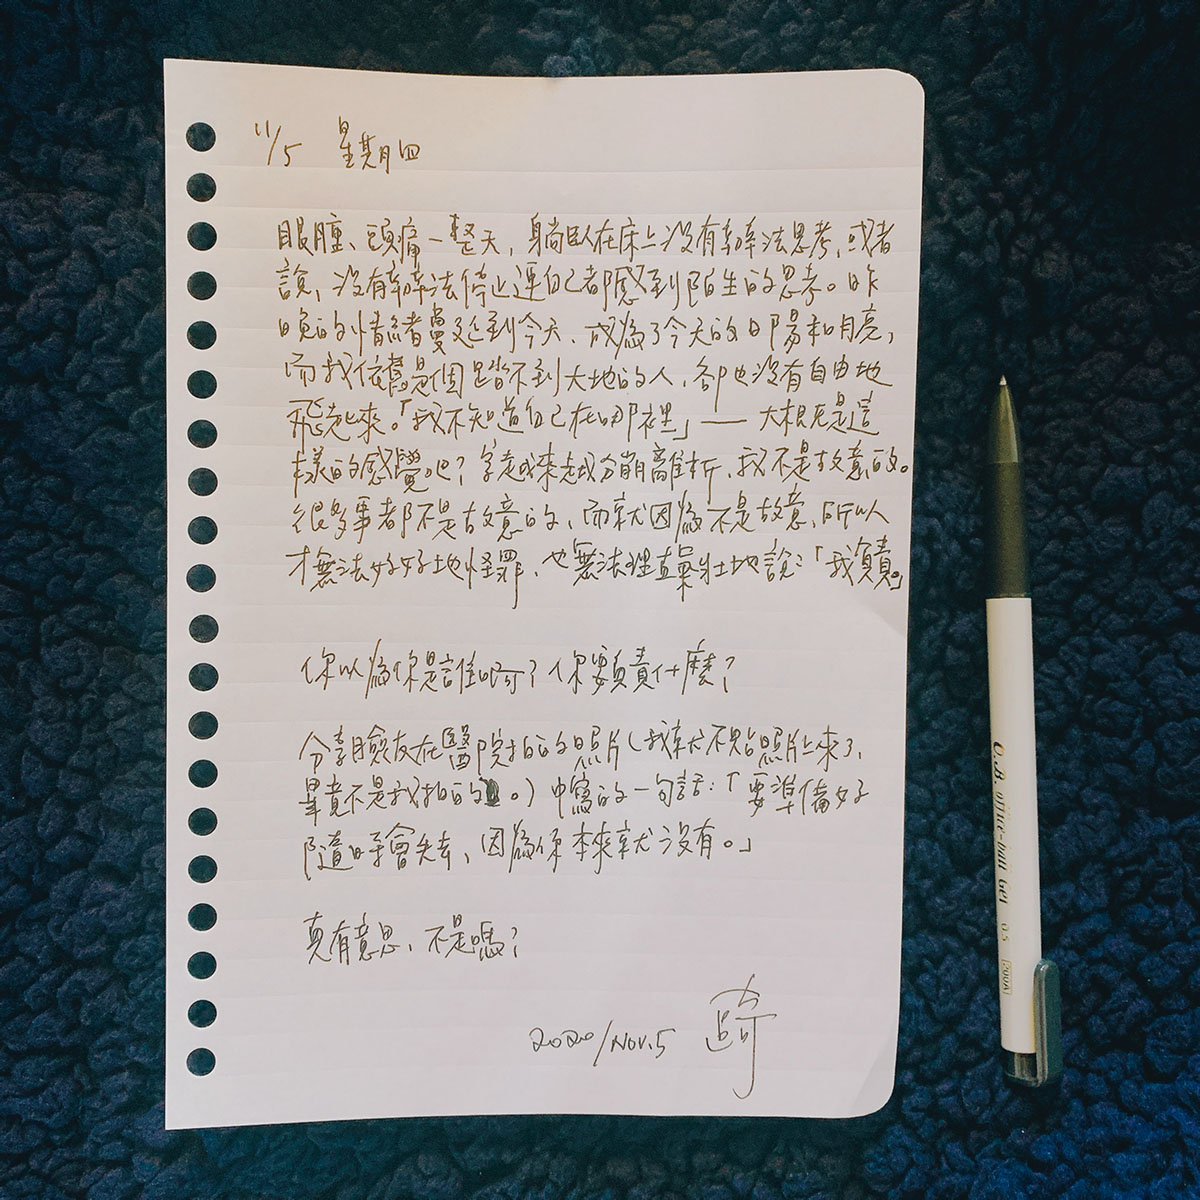 11/5 星期四
眼腫、頭痛一整天，躺臥在床上沒有辦法思考，或者
說，沒有辦法停止連自己都感到陌生的思考。昨
晚的情緒蔓延到今天，成為了今天的太陽和月亮，
而我依舊是個踏不到大地的人，卻也沒有自由地
飛起來。「我不知道自己在哪裡」——大概是這
樣的感覺吧？字越來越分崩離析，我不是故意的。
很多事都不是故意的，而就因為不是故意，所以
才無法好好地怪罪，也無法理直氣壯地說：「我負責。」
你以為你是誰啊？你要負責什麼？
分享臉友在醫院拍的照片（我就不貼照片上來了，
畢竟不是我拍的。）中寫的一句話：「要準備好
隨時會失去，因為你本來就沒有。」
真有意思，不是嗎？
2020/Nov.5
O.B. office-mate Gel 0.5 200A